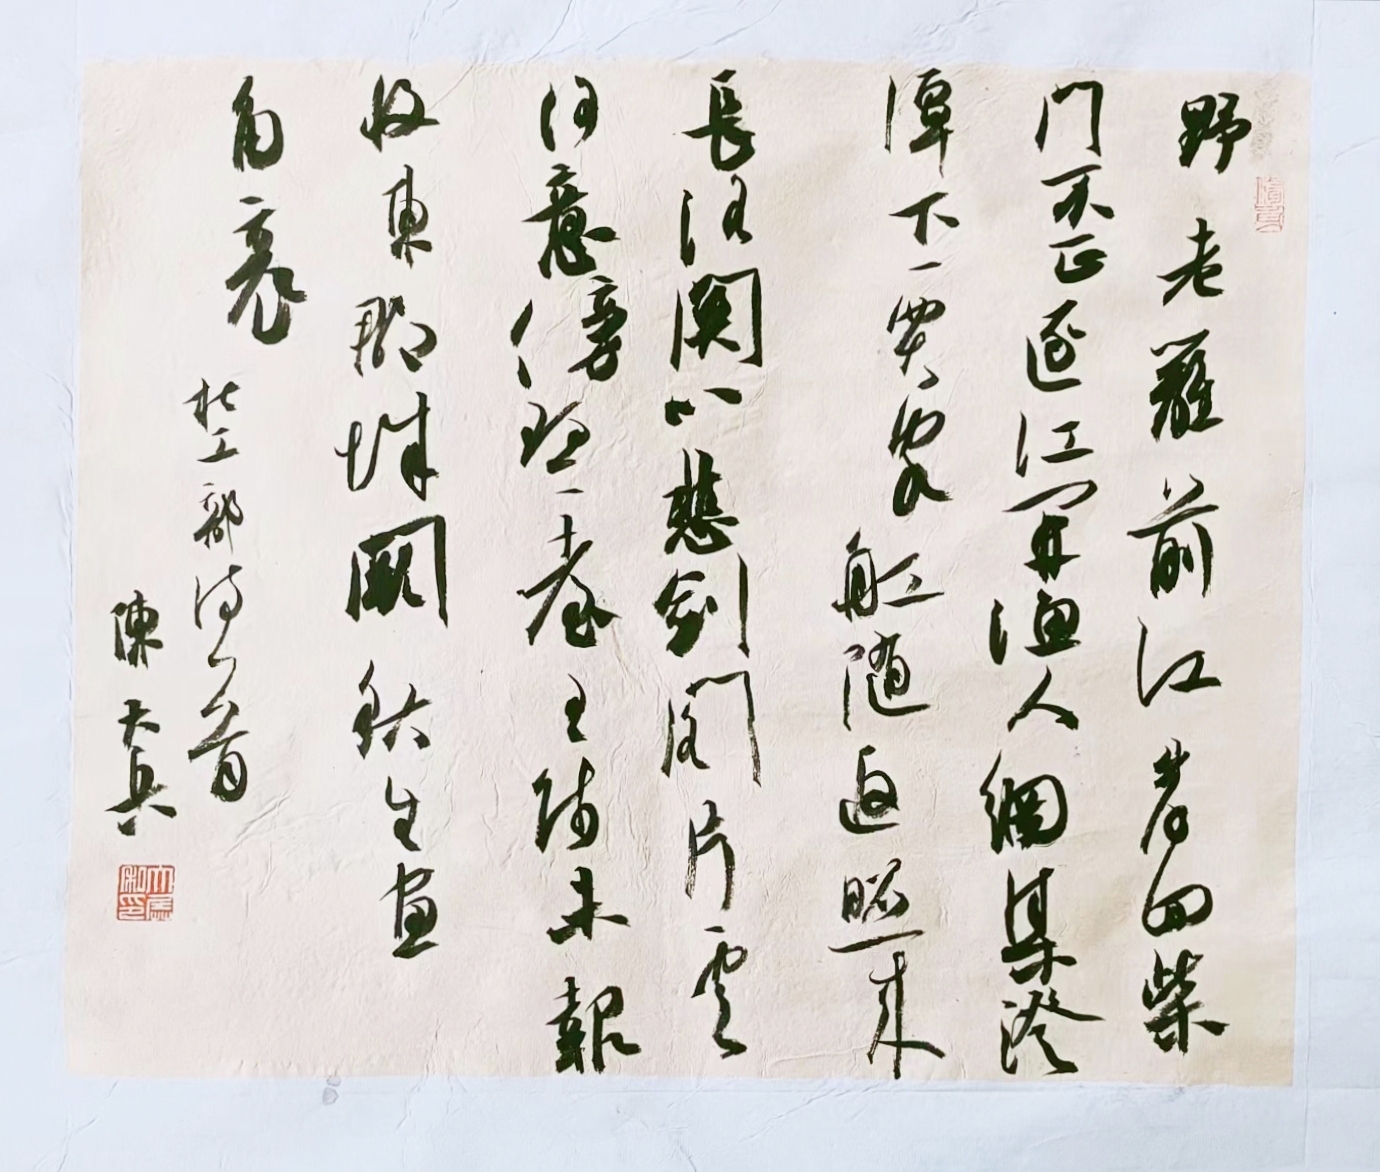 野老籬前江岸回柴
門不正逐江開漁人網集澄
潭下賈客舡隨返照來
長路關心悲劍閣片雲
何意傍琴臺王師未報
收東郡城闕秋生畫
角哀
杜工部詩一首
陳大兵